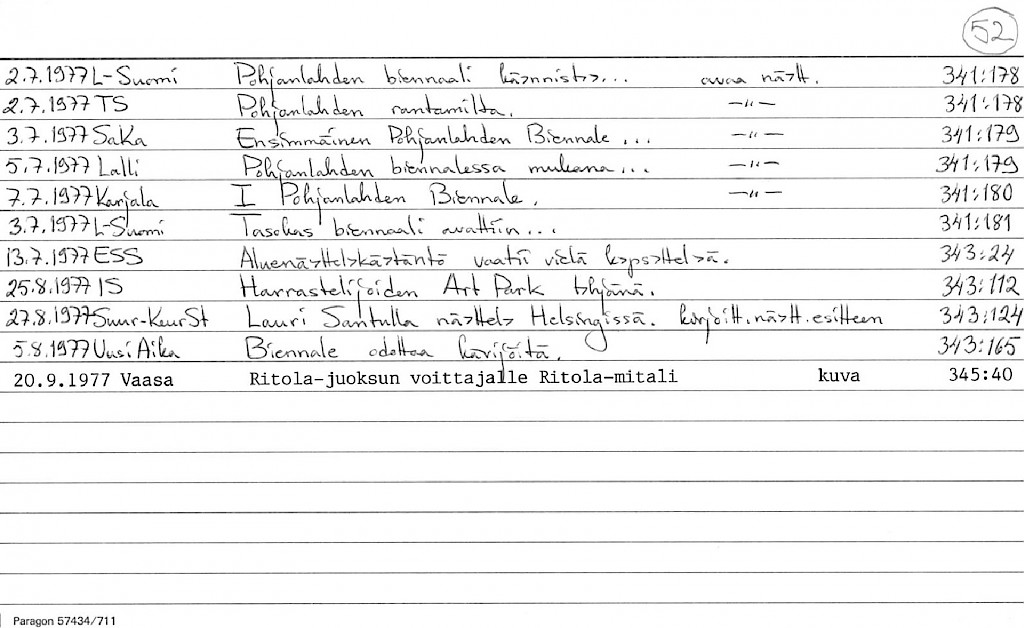 52
2.7.1977 L-Suomi Pohjanlahden biennaali käynnistyy... avaa näytt. 341:178
2.7.1977 TS Pohjanlahden rantamilta. —"— 341:178
3.7.1977 SaKa Ensimmäinen Pohjanlahden Biennale ... —"— 341:179
5.7.1977 Lalli Pohjanlahden biennalessa mukana... —"— 341:179
7.7.1977 Karjala I Pohjanlahden Biennale. —"— 341:180
3.7.1977 L-Suomi Tasokas biennaali avattiin... 341:181
13.7.1977 ESS Aluenäyttelykäytäntö vaatii vielä kypsyttelyä. 343:24
25.8.1977 IS Harrastelijoiden Art Park tyhjänä. 343:112
27.8.1977 Suur-KeurSt Lauri Santulla näyttely Helsingissä. kirjoitt. näytt. esitteen 343:124
5.8.1977 Uusi Aika Biennale odottaa kävijöitä. 343:165
20.9.1977 Vaasa Ritola-juoksun voittajalle Ritola-mitali kuva 345:40
Paragon 57434/711